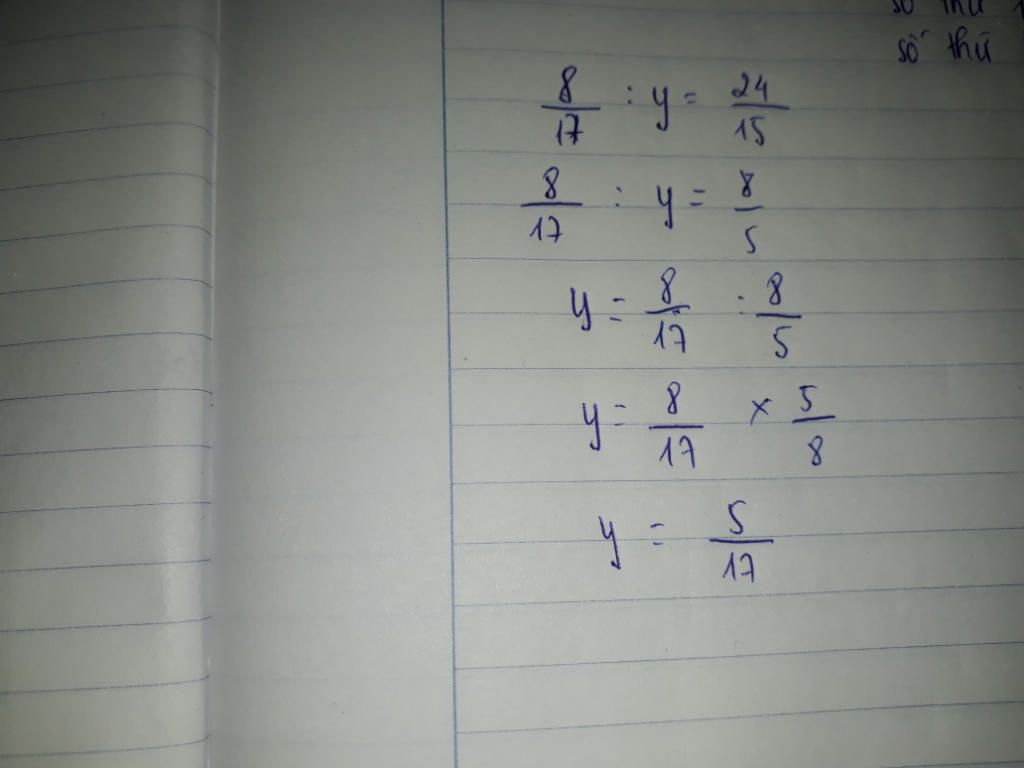 số thứ
số thứ
8/17 : y = 24/15
8/17 : y = 8/5
y = 8/17 : 8/5
y = 8/17 × 5/8
y = 5/17